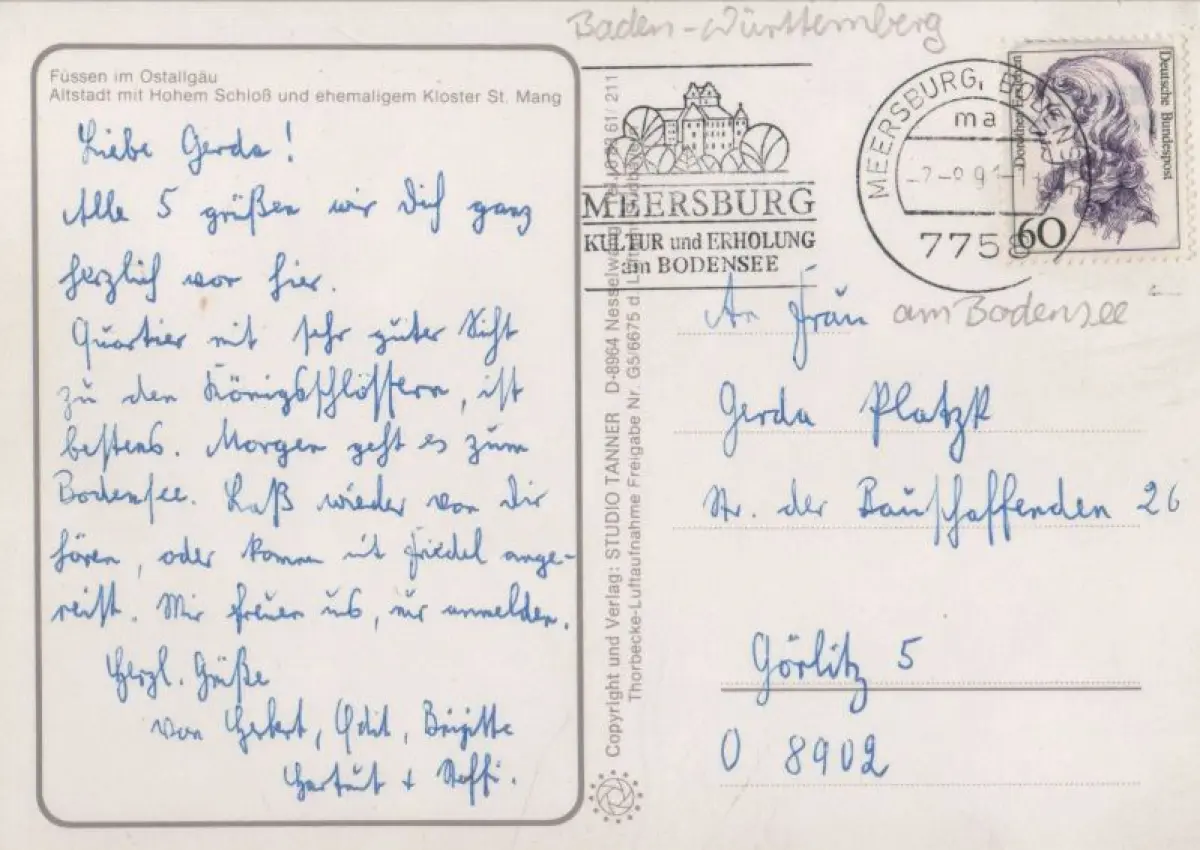 Baden-Württemberg
Füssen im Ostallgäu
Altstadt mit Hohem Schloß und ehemaligem Kloster St. Mang
Liebe Gerda!
Alle 5 grüßen wir Dich ganz
herzlich von hier.
Quartier mit sehr guter Sicht
zu den Königsschlössern, ist
bestens. Morgen geht es zum
Bodensee. Laß wieder von Dir
hören, oder komm mit Friedel ange-
reist. Wir freuen uns, nur anmelden.
Herzl. Grüße
von Herbert, Edit, Brigitte
Hartmut + Steffi.
Copyright und Verlag: STUDIO TANNER D-8964 Nesselwang
Thorbecke-Luftaufnahme Freigabe Nr. G5/6675 d.
61/211
MEERSBURG
KULTUR und ERHOLUNG
am BODENSEE
MEERSBURG, BODENSEE
ma
7758
Deutsche Bundespost
Dorothea Erxleben
60
An Frau
am Bodensee
Gerda Platzk
Str. der Bauschaffenden 26
Görlitz 5
O 8902